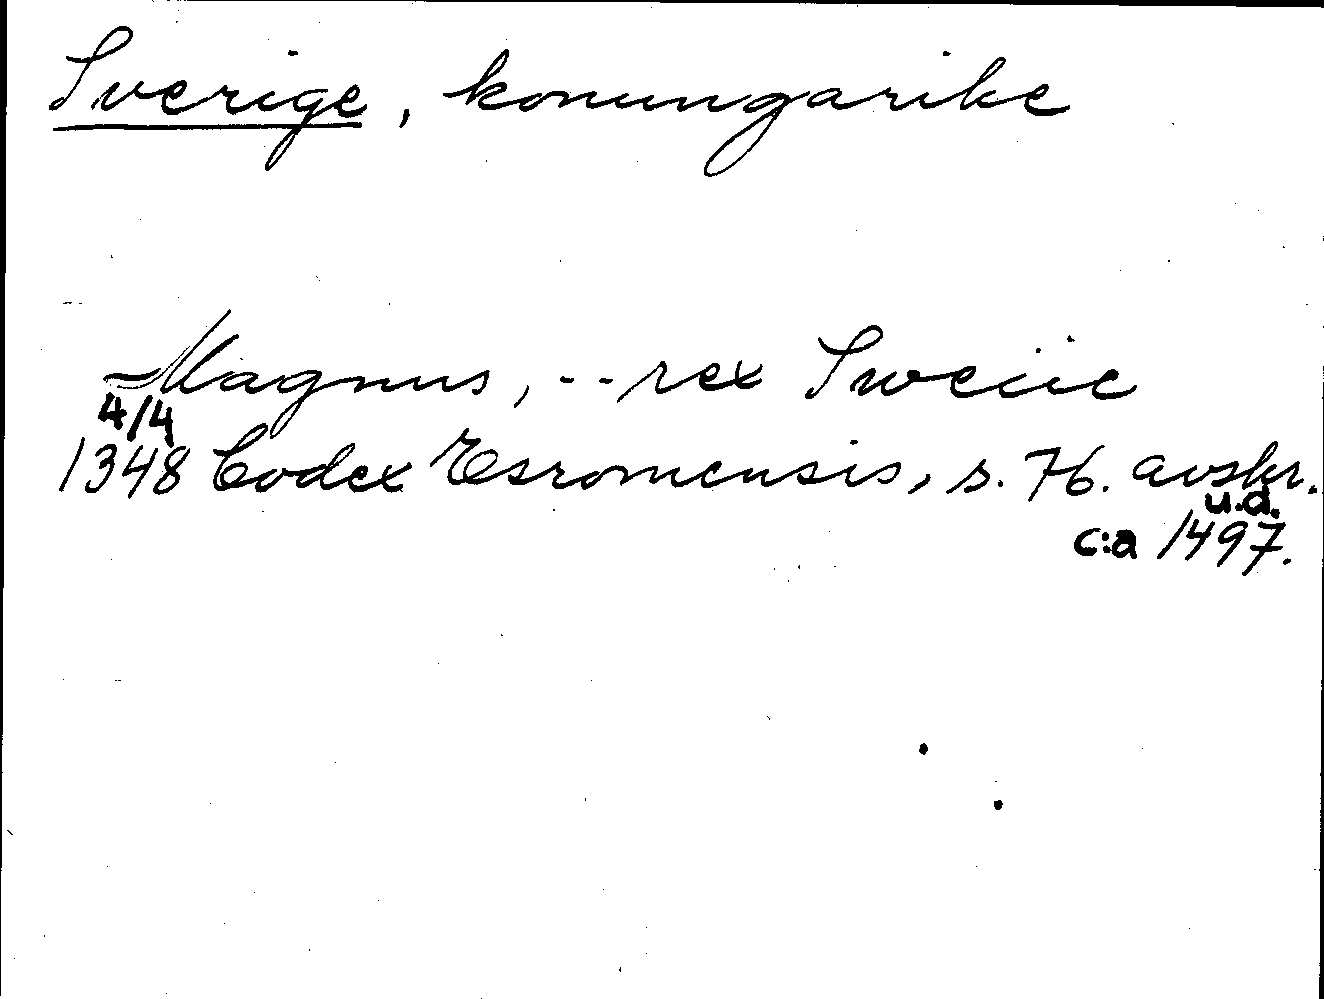 Sverige, konungarike
Magnus, -- rex Sweiie
4/4
1348 Codex Esromensis, s. 76. avskr.
u.d.
c:a 1497.